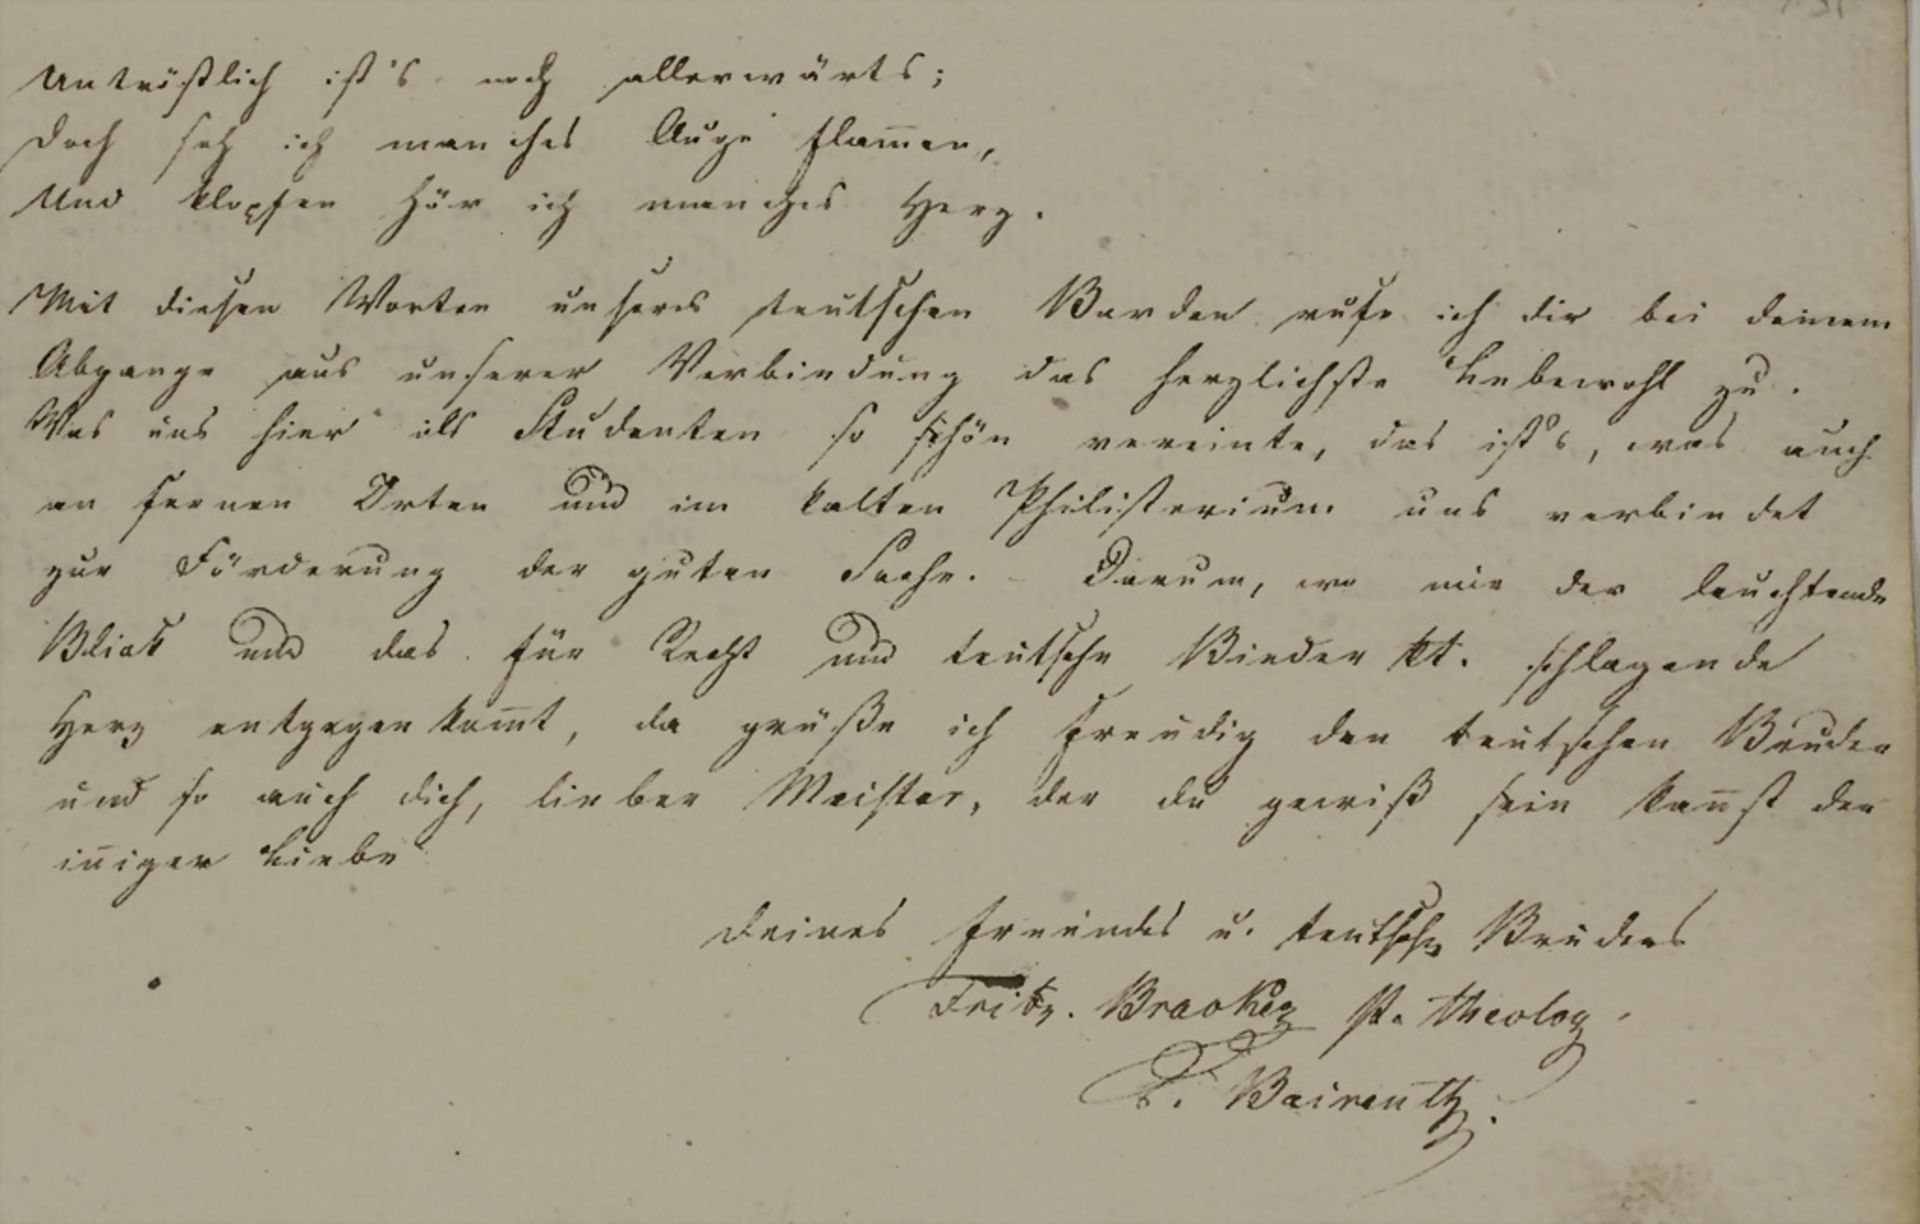 Untröstlich ist's noch allerwärts;
Doch seh ich manches Auge flam̄en,
Und klopfen hör ich manches Herz.
Mit diesen Worten unseres teutschen Barden rufe ich dir bei deinem
Abgange aus unserer Verbindung das herzlichste Lebewohl zu.
Was uns hier als Studenten so schön vereinte, das ist's, was auch
an fernen Orten und im kalten Philisterium uns verbindet
zur Förderung der guten Sache. – Darum, wo mir der leuchtende
Blick und das für Recht und teutsche Biederkt. schlagende
Herz entgegenkom̄t, da grüße ich freudig den teutschen Bruder
und so auch dich, lieber Meister, der du gewiß sein kan̄st der
in̄igen Liebe
deines Freundes u. teutschn Bruders
Fritz. St. theolog.
a. Baireuth.